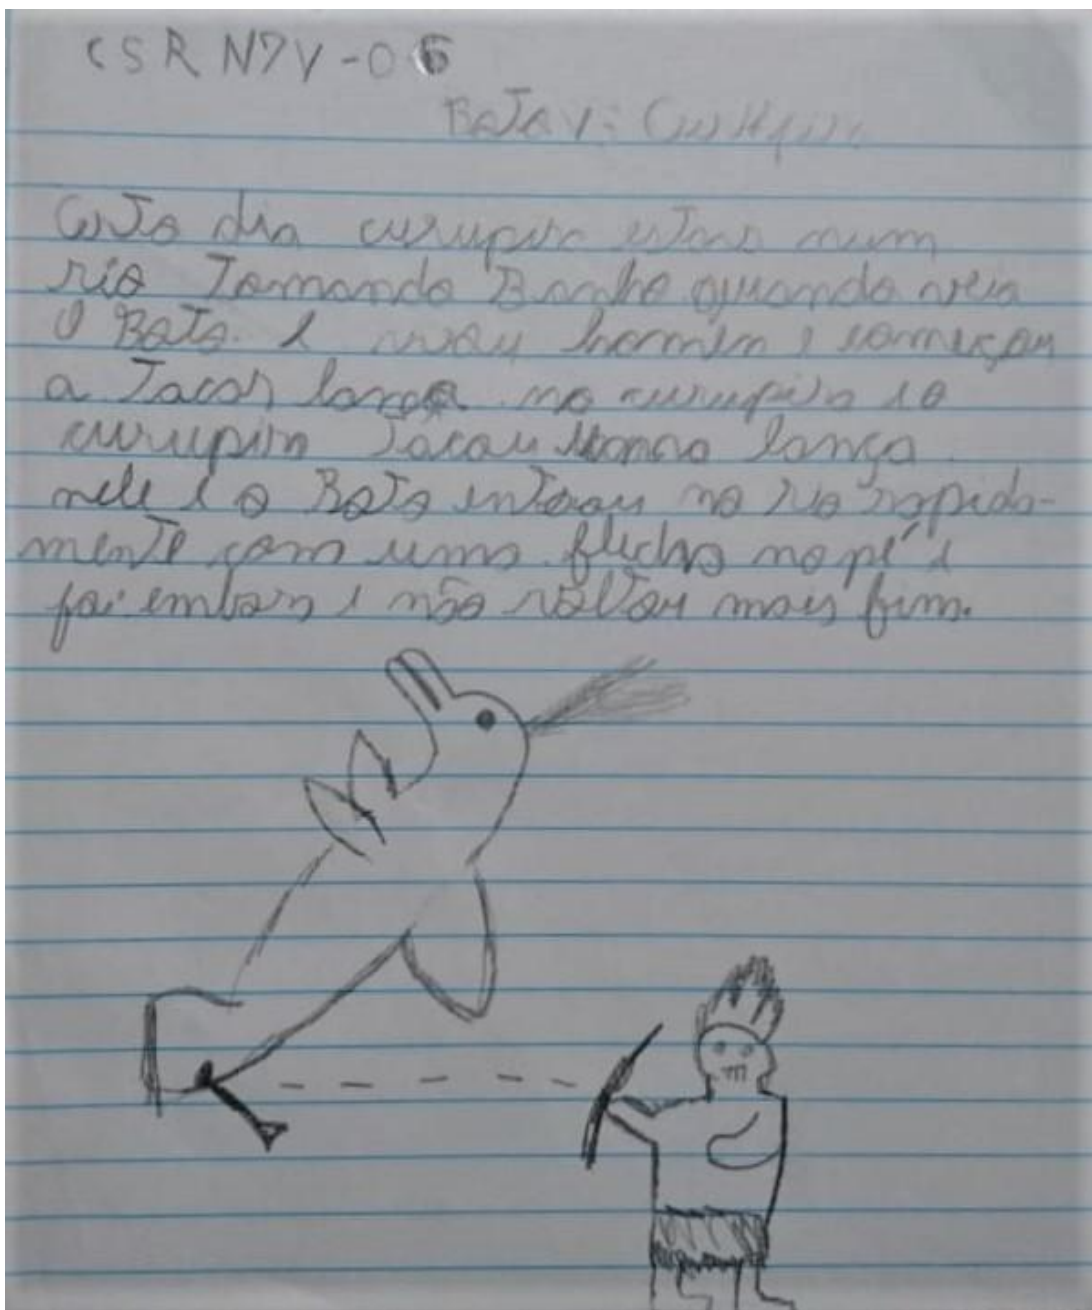 CSR N7V-06
Boto
Certo dia curupira estava num
rio Tomando Banho quando veio
O Boto. e virou homem e começou
a Tacar lança no curupira e o
curupira Tacou lança
nele e o Boto entrou no rio rapida-
mente com uma flecha no pé e
foi embora e não voltou mais fim.